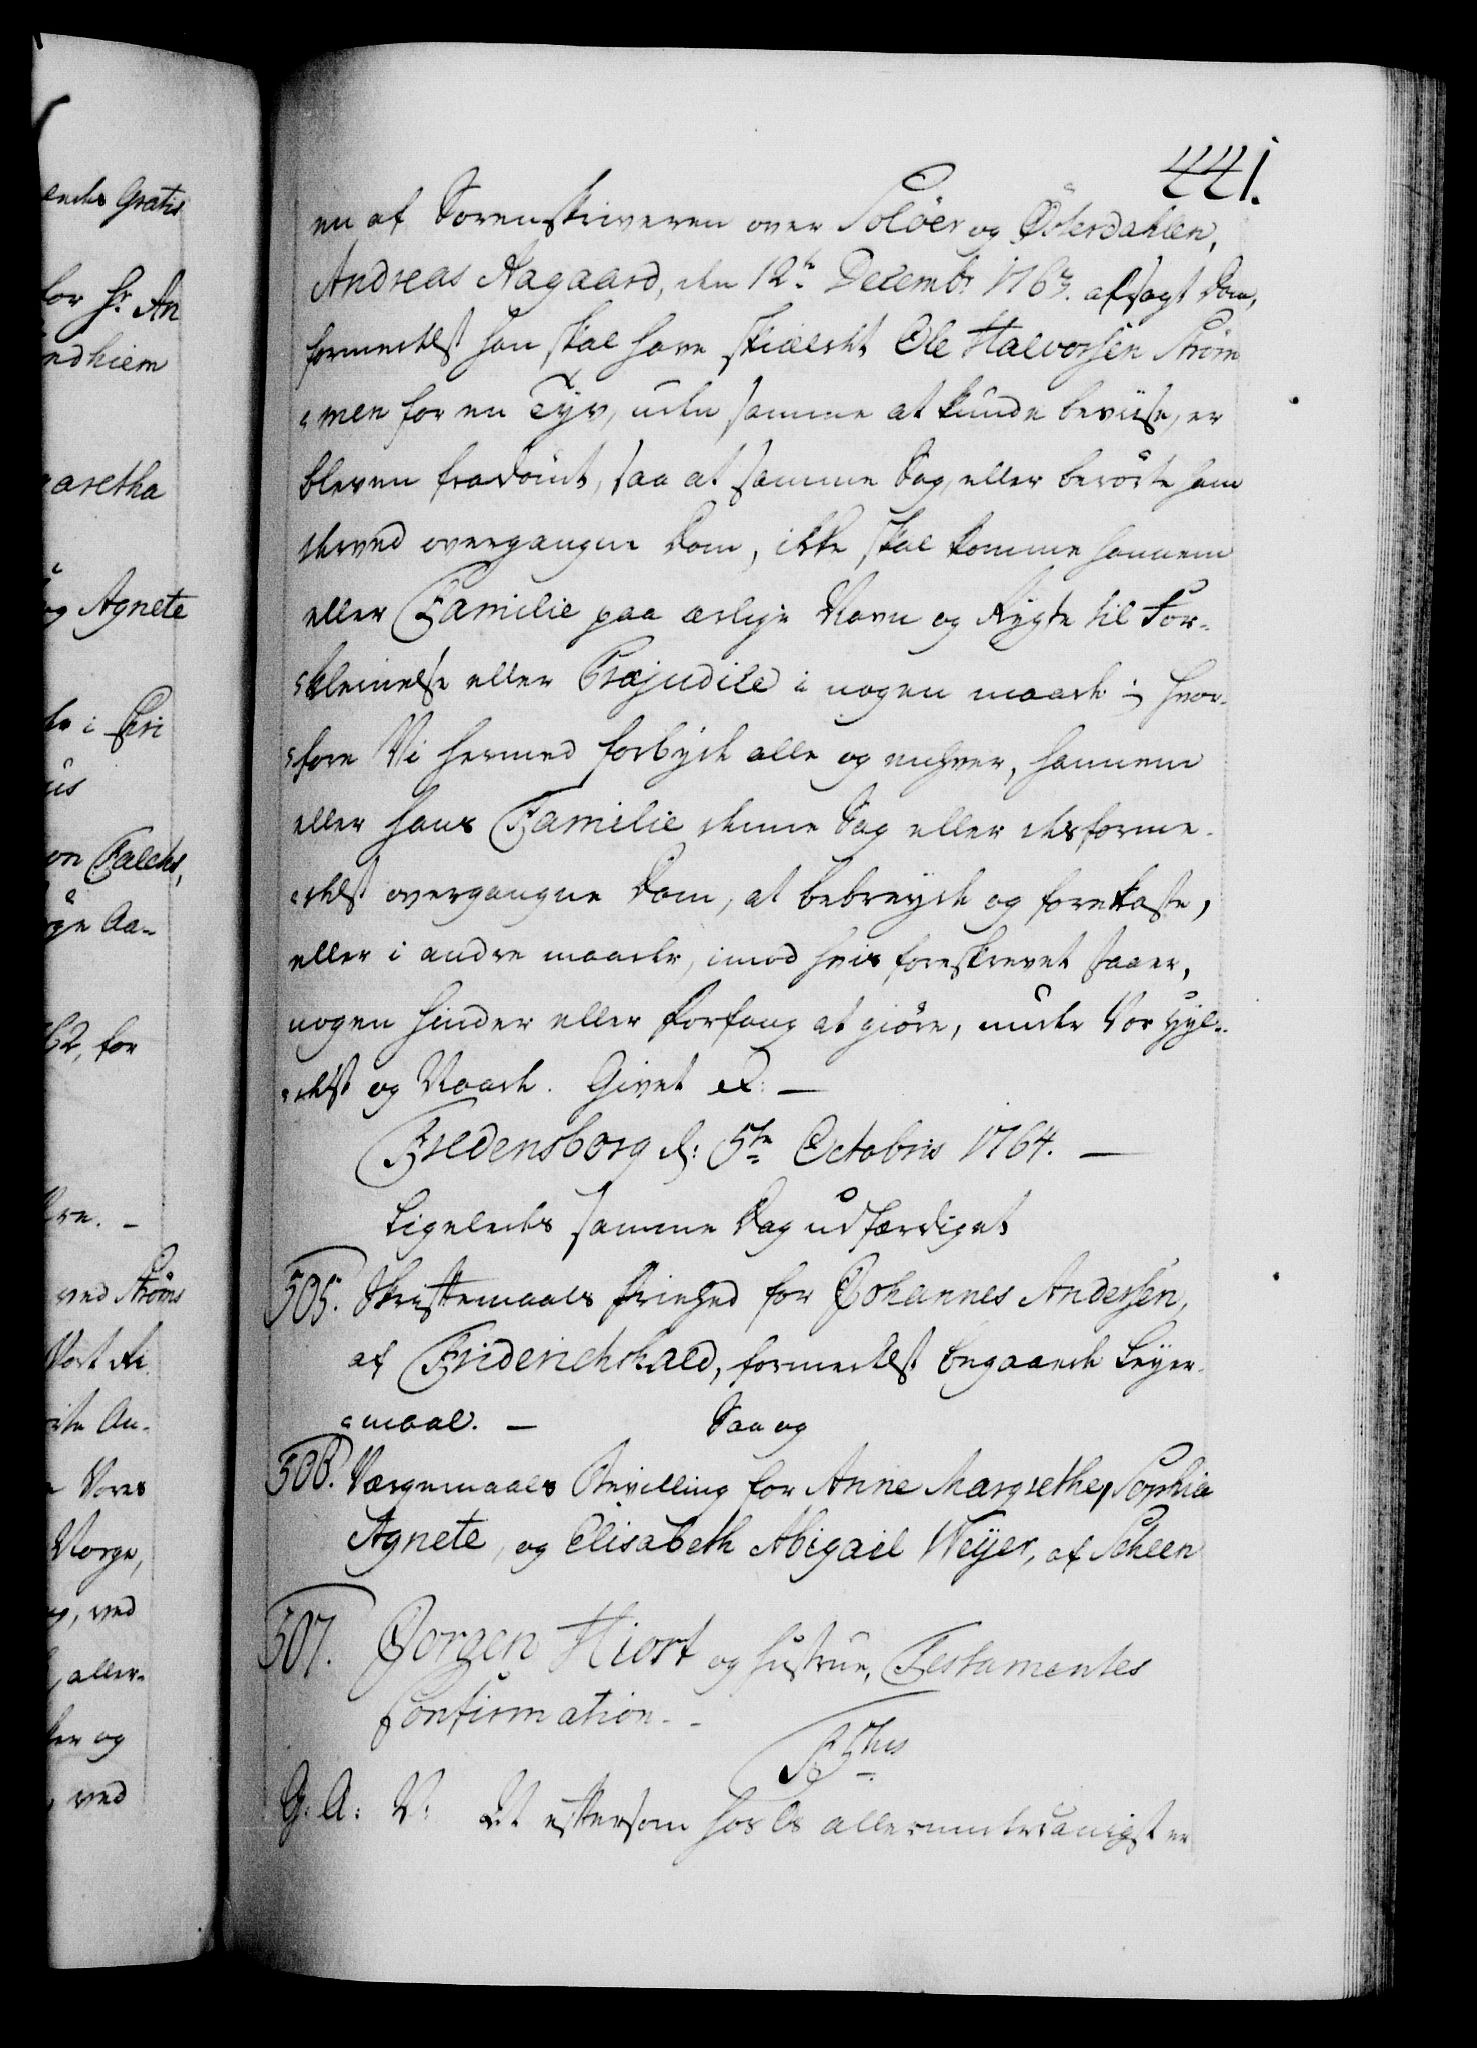 441.
en af Sorenskriveren over Soløer og Østerdahlen,
Andreas Aagaard, den 12te Decembr 1763. afsagt Dom,
formedelst han skal have skieldt Ole Halvorsen Strøm
=men for en Tyv, uden samme at kunde beviise, er
bleven fradømt, saa at samme Sag, eller berørte ham
derved overgangne Dom, ikke skal komme hannem
eller Familie paa ærlige Navn og Rygte til For-
=kleinelse eller Præjudice i nogen maade; hvor-
=fore Vi hermed forbyde alle og enhver, hannem
eller hans Familie denne Sag eller desforme-
=delst overgangne Dom, at bebreyde og forekaste,
eller i andre maader, imod hvis foreskrevet staaer,
nogen hinder eller Forfang at giøre, under Vor Hyl-
=dest og Naade. Givet &: —
Fredensborg d: 5te Octobris 1764. —
Ligeledes samme Dag udfærdiget
505. Skriftemaals Friehed for Johannes Andersen,
af Friderichshald, formedelst begaaede Leyer-
=maal. — Saa og
506. Værgemaals Bevilling for Anne Margrethe, Sophia
Agnete, og Elisabeth Abigael Weyer, af Scheen
507. Jørgen Hiort og Hustrue, Testamentes
Confirmation. -
F 5tus
G: A: V: At eftersom hos Os allerunderdanigst er
ends Gratis
for Hr. An
ndhiem
garetha
og Agnete
de i Fri
us
on Falchs,
ge Aa-
62, for
ere. -
ved Strøms
Vort Ri
rte An-
Vores
Norge,
og, ved
aller-
ker og
, ved